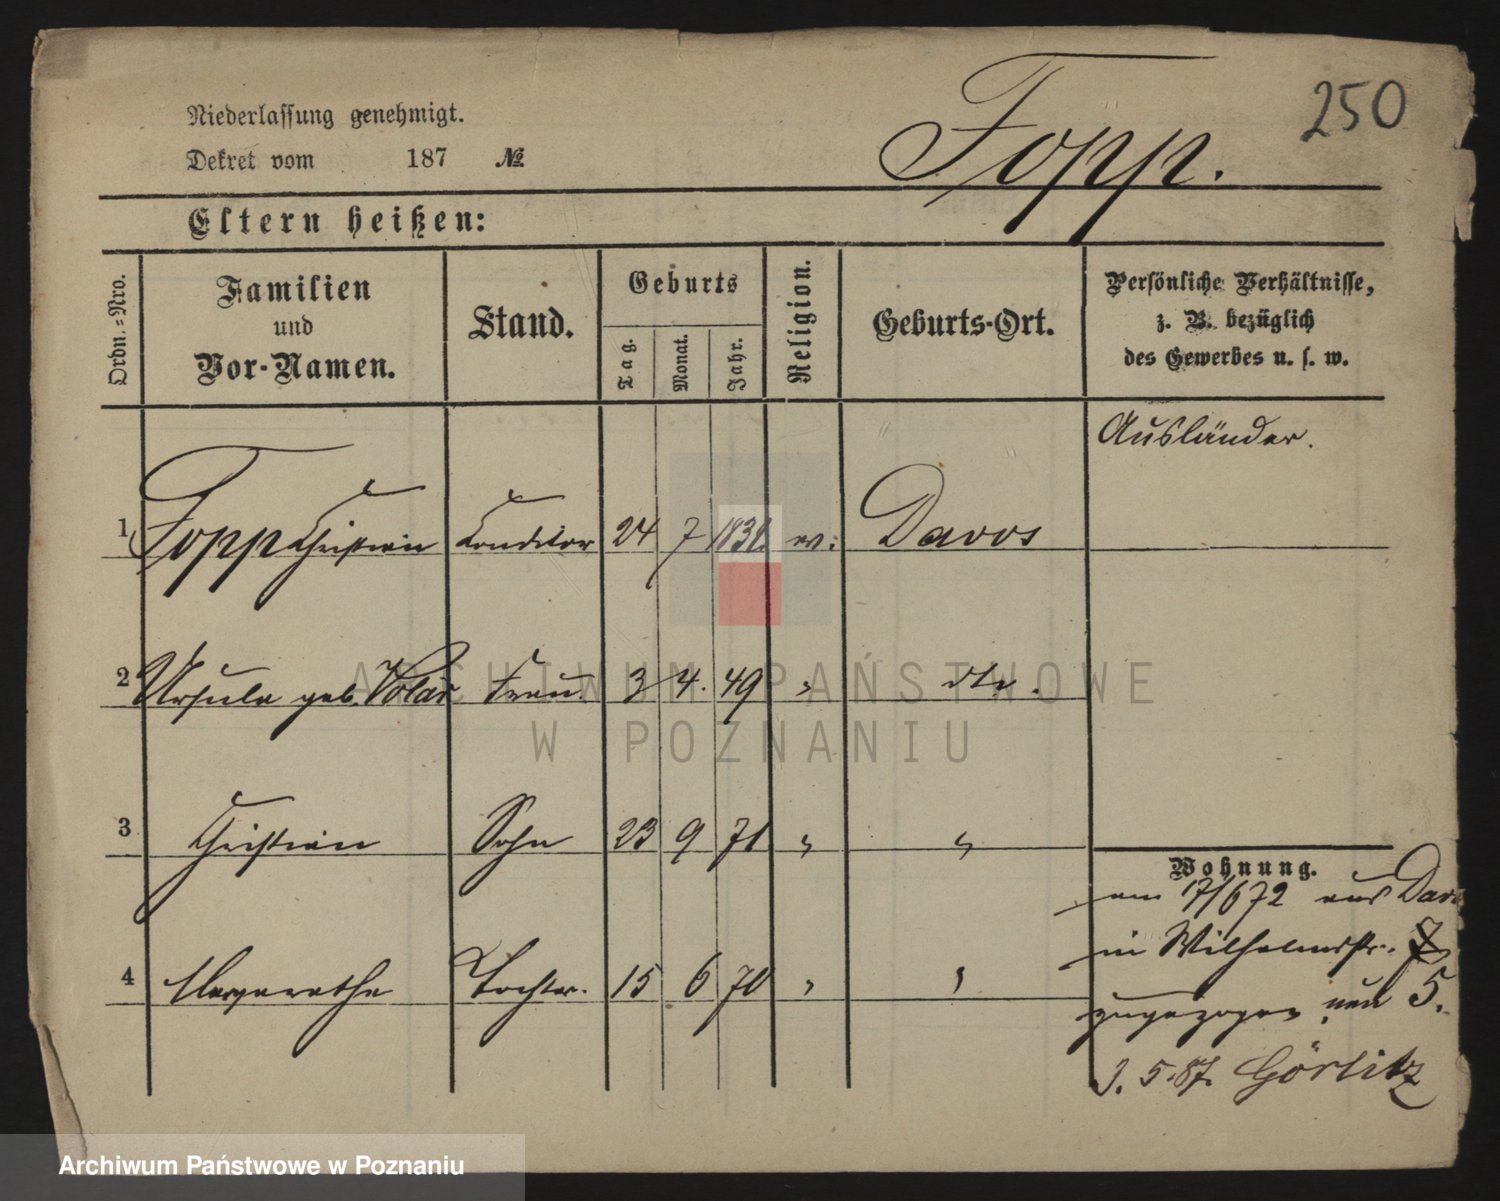 250
Niederlassung genehmigt.
Dekret vom 187 №
Fopp.
Eltern heißen:
Ordn.=Nro.
Familien und Vor-Namen.
Stand.
Geburts
Tag. Monat. Jahr.
Religion.
Geburts-Ort.
Persönliche Verhältnisse,
z. B. bezüglich
des Gewerbes u. s. w.
Ausländer.
1 Fopp Christian Conditor 24 7 183 ev: Davos
2 Ursula geb. Frau. 3 4. 49 " dto.
3 Christian Sohn 23 9 71 " "
4 Margarethe Tochter. 15 6 70 " "
Wohnung.
am 17/6 72 aus
in Wilhelmstr. 7
zugezogen nun 5.
3. 5. 87. Görlitz
ARCHIWUM PAŃSTWOWE
W POZNANIU
Archiwum Państwowe w Poznaniu